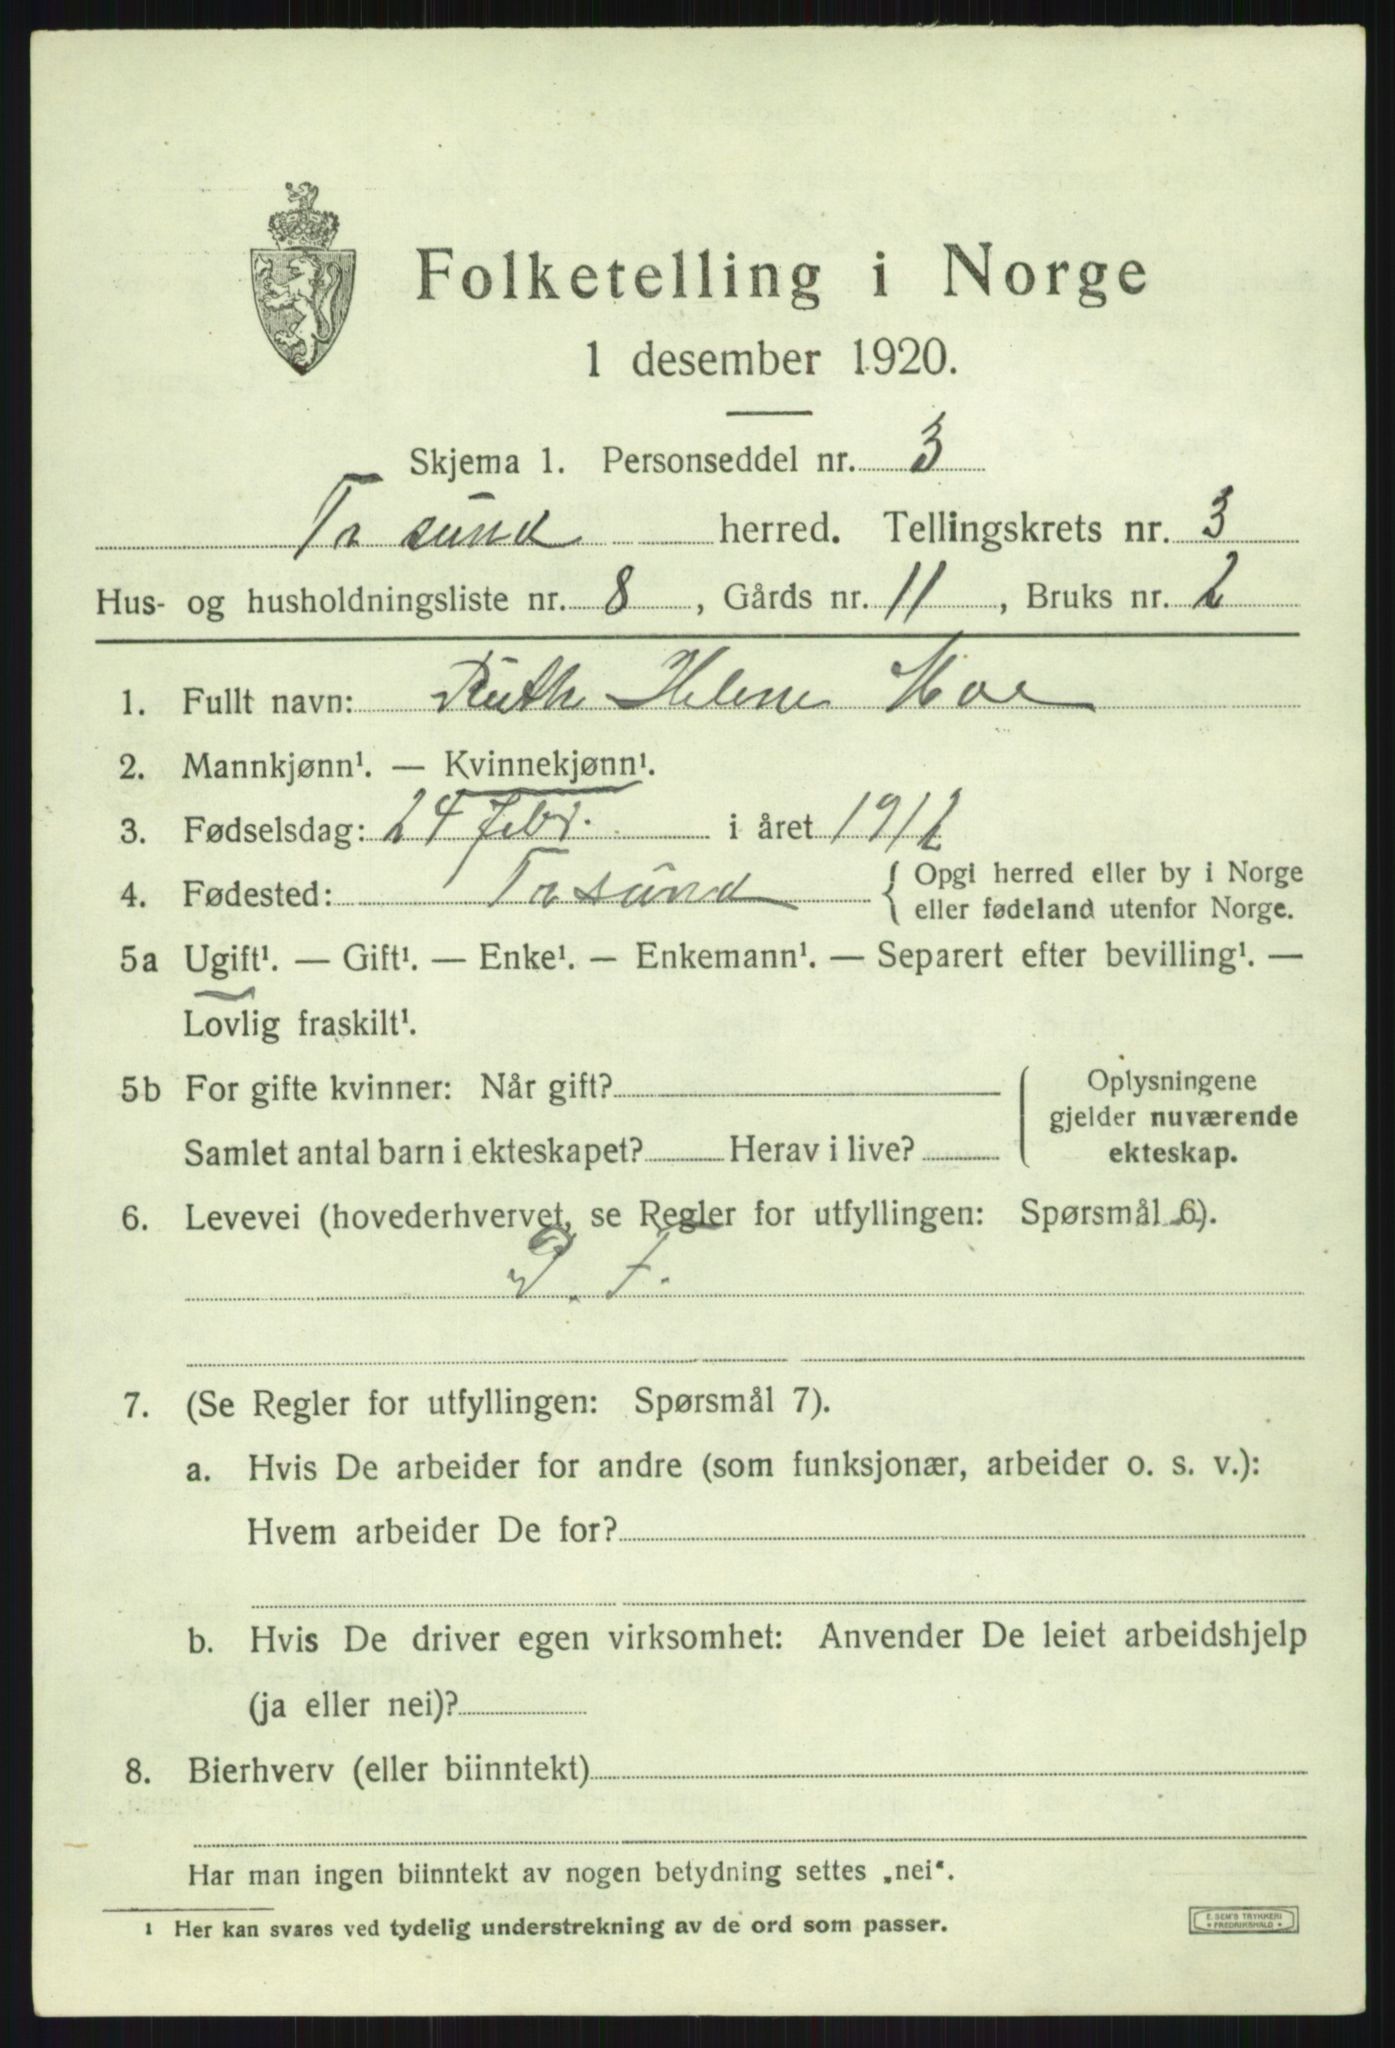 Folketelling i Norge
1 desember 1920.
Skjema 1. Personseddel nr. 3
Trosund herred. Tellingskrets nr. 3
Hus- og husholdningsliste nr. 8, Gårds nr. 11, Bruks nr. 2
1. Fullt navn: Ruth Helene Moe
2. Mannkjønn¹. — Kvinnekjønn¹.
3. Fødselsdag: 24 febr. i året 1912
4. Fødested: Trosund { Opgi herred eller by i Norge
eller fødeland utenfor Norge.
5a Ugift¹. — Gift¹. — Enke¹. — Enkemann¹. — Separert efter bevilling¹. —
Lovlig fraskilt¹.
5b For gifte kvinner: Når gift?
Samlet antal barn i ekteskapet? Herav i live?
Oplysningene
gjelder nuværende
ekteskap.
6. Levevei (hovederhvervet, se Regler for utfyllingen: Spørsmål 6).
7. (Se Regler for utfyllingen: Spørsmål 7).
a. Hvis De arbeider for andre (som funksjonær, arbeider o. s. v.):
Hvem arbeider De for?
b. Hvis De driver egen virksomhet: Anvender De leiet arbeidshjelp
(ja eller nei)?
8. Bierhverv (eller biinntekt)
Har man ingen biinntekt av nogen betydning settes „nei“.
¹ Her kan svares ved tydelig understrekning av de ord som passer.
E. SEM'S TRYKKERI
* FREDRIKSHALD *